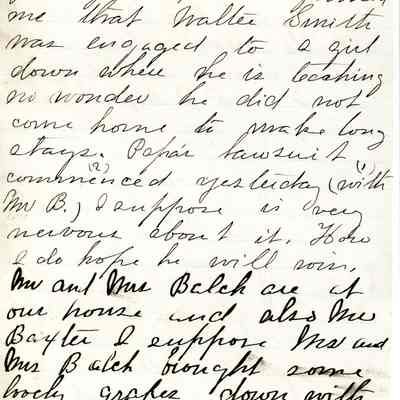 me that Walter Smith
was engaged to a girl
down where he is teaching
no wonder he did not
come home to make long
stays. Papa's lawsuit
commenced (2) yesterday (with (1)
Mr B.) I suppose is very
nervous about it. How
I do hope he will win.
Mr and Mrs Balch are at
our house and also Mr
Baxter I suppose Mr and
Mrs Balch brought some
lovely grapes down with